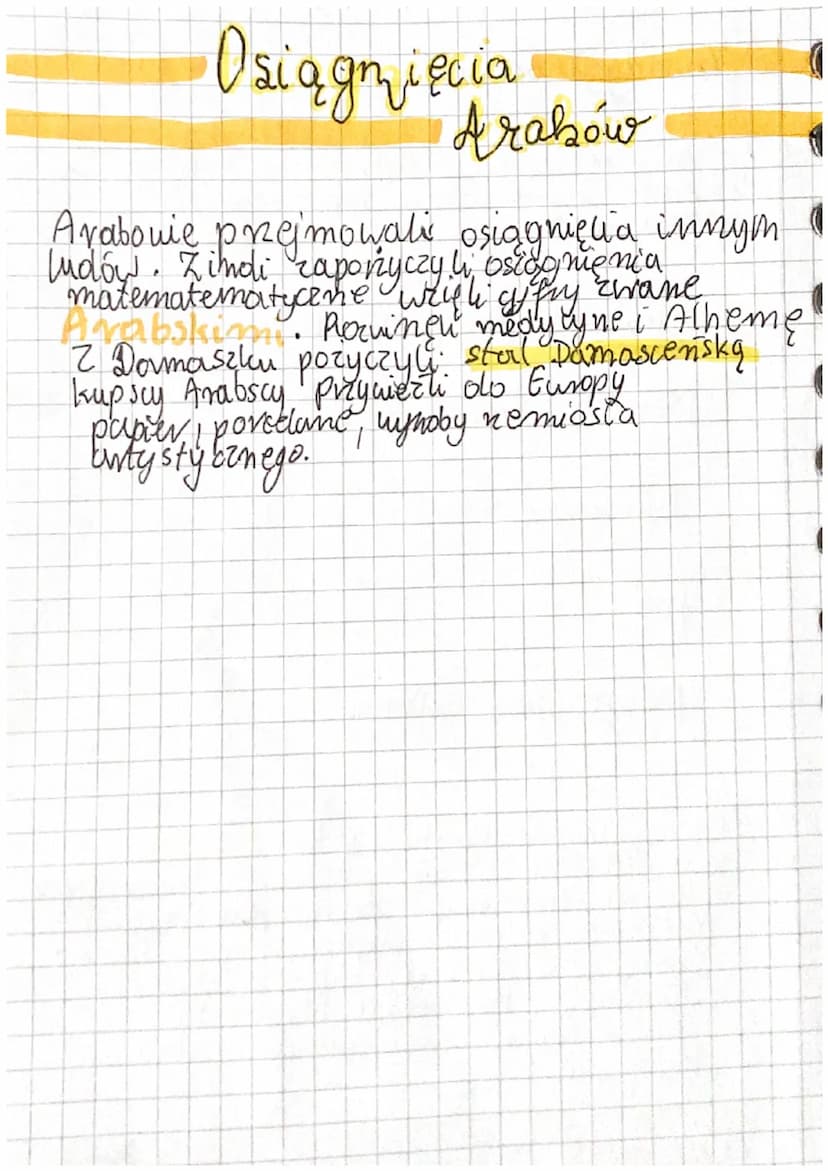 Osiągnięcia
Arabów
Arabowie przejmowali osiągnięcia innym
ludów. Z indi zapożyczyli osiągnięnia
matematematyczne wzięli cyfry zwane
Arabskimi. Rozwinęli medycyne i Alhemę
Z Damaszku pozyczyli stal Damasceńską
kupscy Arabscy Przywiezli do Europy
papier, porcelane, wyroby rzemiosła
artystycznego.